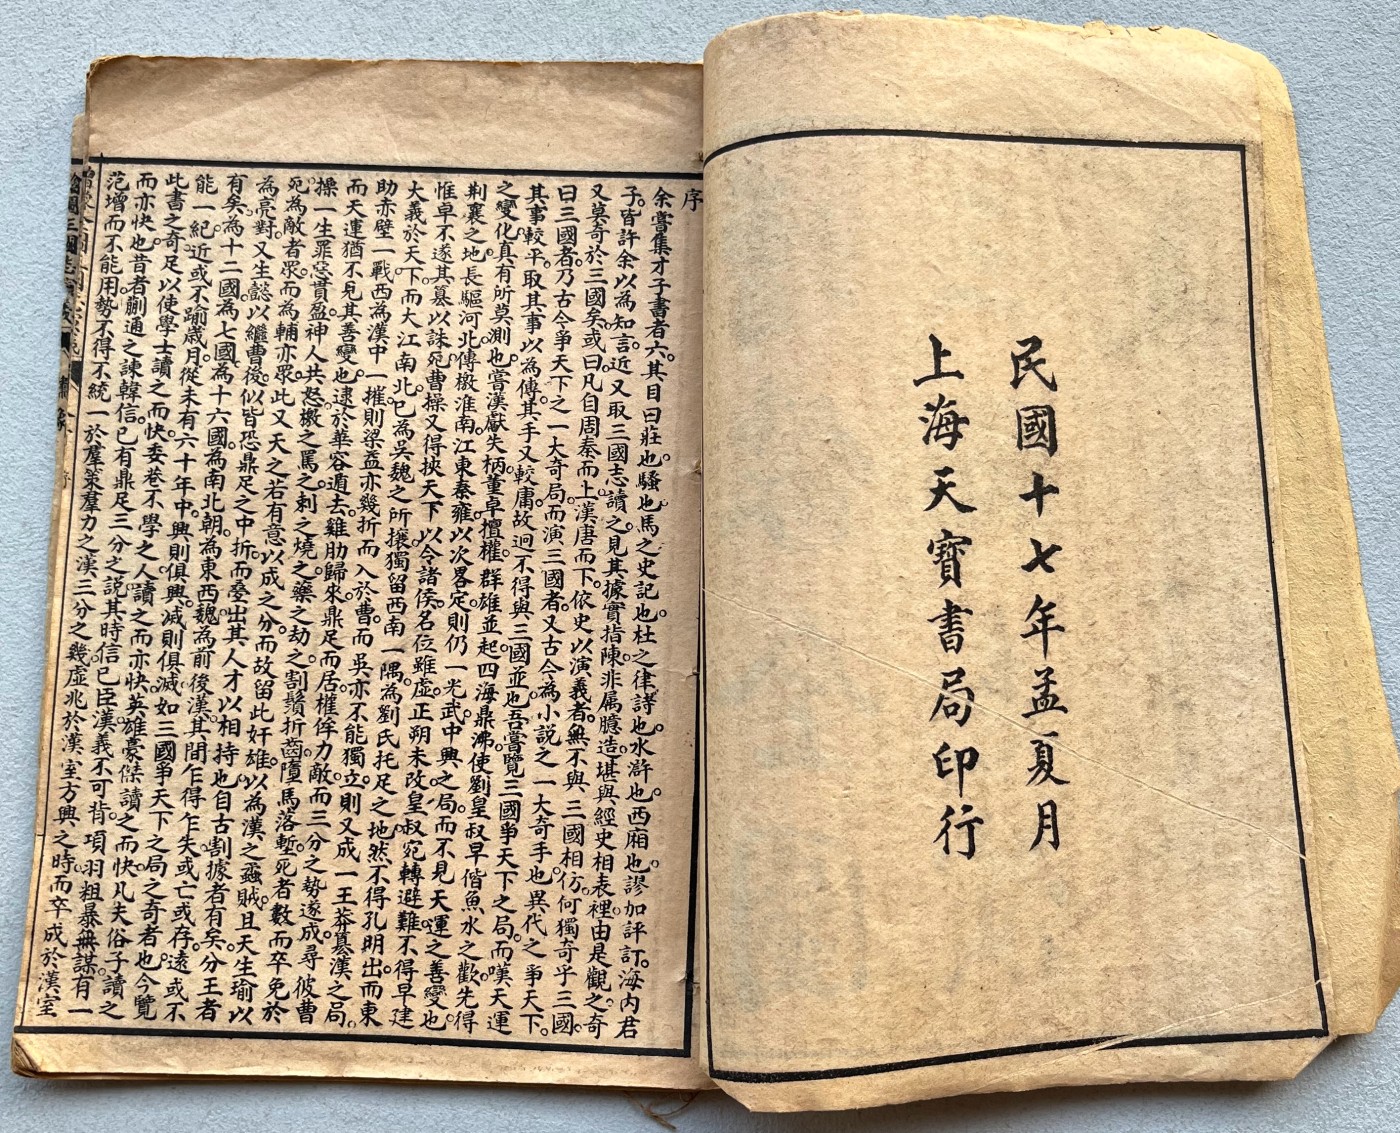 民國十七年孟夏月
上海天寶書局印行
序
余嘗集才子書者六。其目曰莊也騷也馬之史記也杜之律詩也水滸也西廂也。謬加評訂。海內君
子。皆許余以為知言。近又取三國志讀之。見其據實指陳。非屬臆造。堪與經史相表裡。由是觀之。奇
又莫奇於三國矣。或曰凡自周秦而上漢唐而下。依史以演義者。無不與三國相仿。何獨奇乎三國。
曰三國者。乃古今爭天下之一大奇局。而演三國者。又古今為小說之一大奇手也。異代之爭天下。
其事較平。取其事以為傳。其手又較庸。故迥不得與三國並也。吾嘗覽三國爭天下之局。而嘆天運
之變化。真有所莫測也。當漢獻失柄。董卓擅權。群雄並起。四海鼎沸。使劉皇叔早偕魚水之歡。先得
荊襄之地。長驅河北。傳檄淮南。江東秦雍。以次畧定。則仍一光武中興之局。而不見天運之善變也。
惟卓不遂其篡以誅死。曹操又得挾天下以令諸侯。名位雖虛。正朔未改。皇叔宛轉避難。不得早建
大義於天下。而大江南北。已為吳魏之所攘。獨留西南一隅。為劉氏托足之地。然不得孔明出而東
助赤壁一戰。西為漢中一摧。則梁益亦幾折而入於曹。而吳亦不能獨立。則又成一王莽篡漢之局。
而天運猶不見其善變也。逮於華容遁去。雞肋歸來。鼎足而居。權侔力敵。而三分之勢遂成。尋彼曹
操一生。罪惡貫盈。神人共怒。檄之罵之刺之燒之藥之劫之。割鬚折齒。墮馬落塹。死者數。而卒免於
死。為敵者眾。而為輔亦眾。此又天之若有意以成之分。而故留此奸雄。以為漢之蝨賊。且天生瑜以
為亮對。又生懿以繼曹後。似皆恐鼎足之中折。而疊出其人才以相持也。自古割據者有矣。分王者
有矣。為十二國。為七國。為十六國。為南北朝。為東西魏。為前後漢。其間乍得乍失。或亡或存。遠或不
能一紀。近或不踰歲月。從未有六十年中。興則俱興。滅則俱滅。如三國爭天下之局之奇者也。今覽
此書之奇。足以使學士讀之。而快。委巷不學之人讀之而亦快。英雄豪傑讀之而快。凡夫俗子讀之
而亦快也。昔者蒯通之諫韓信。已有鼎足三分之說。其時信已臣漢。義不可背。項羽粗暴無謀。有一
范增而不能用。勢不得不統一於羣策羣力之漢。三分之幾。虛兆於漢室方興之時。而卒成於漢室